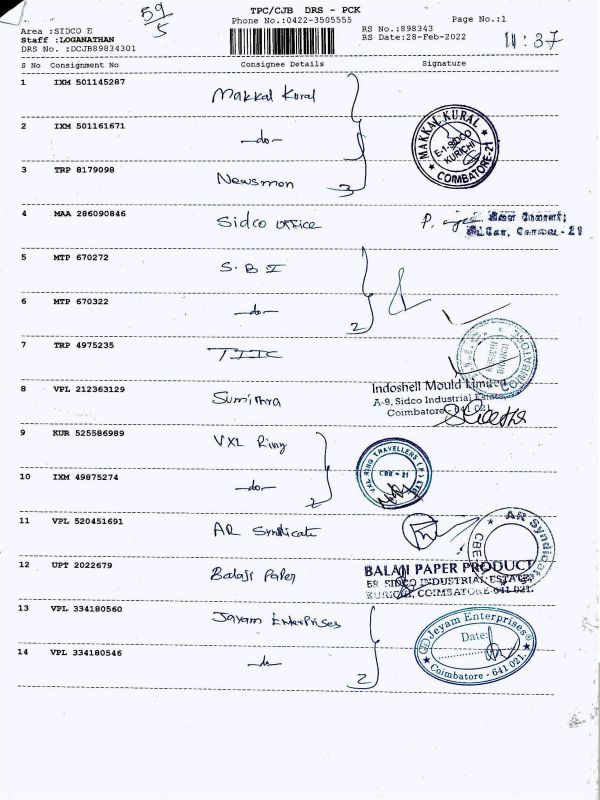 59/5
TPC/CJB DRS - PCK
Phone No.:0422-3505555
Page No.:1
Area :SIDCO E
RS No.:898343
Staff :LOGANATHAN
RS Date:28-Feb-2022
11:37
DRS No. :DCJB89834301
S No Consignment No Consignee Details Signature
1 IXM 501145287 Makkal Kural
MAKKAL KURAL
E-1-SIDCO
KURICHI
COIMBATORE-21
2 IXM 501161671 -do-
3 TRP 8179098 Newsmon 3
4 MAA 286090846 Sidco office P.
5 MTP 670272 S.B I
6 MTP 670322 -do- 2
7 TRP 4975235 TIIC
KURICHI
BRANCH
COIMBATORE
8 VPL 212363129 Sumithra
Indoshell Mould Limited
A-9, Sidco Industrial Estate,
Coimbatore - 641 021.
9 KUR 525586989 VXL Ring
VXL RING TRAVELLERS (P) LTD
CBE - 21
10 IXM 49875274 -do- 2
11 VPL 520451691 AR Syndicate
AR Syndicate
CBE
12 UPT 2022679 Balaji Paper
BALAJI PAPER PRODUCT
SIDCO INDUSTRIAL ESTATE,
KURICHI, COIMBATORE-641 021.
13 VPL 334180560 Jayam Enterprises
Jeyam Enterprises
Date:
Coimbatore - 641 021.
14 VPL 334180546 -do- 2